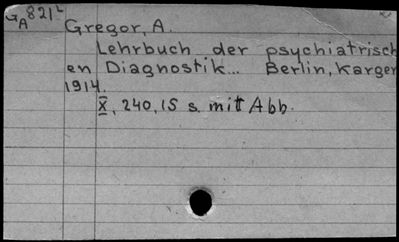 GA 821L
Gregor, A.
Lehrbuch der psychiatrisch
en Diagnostik... Berlin, Karger
1914.
X, 240, 15 s. mitt Abb.